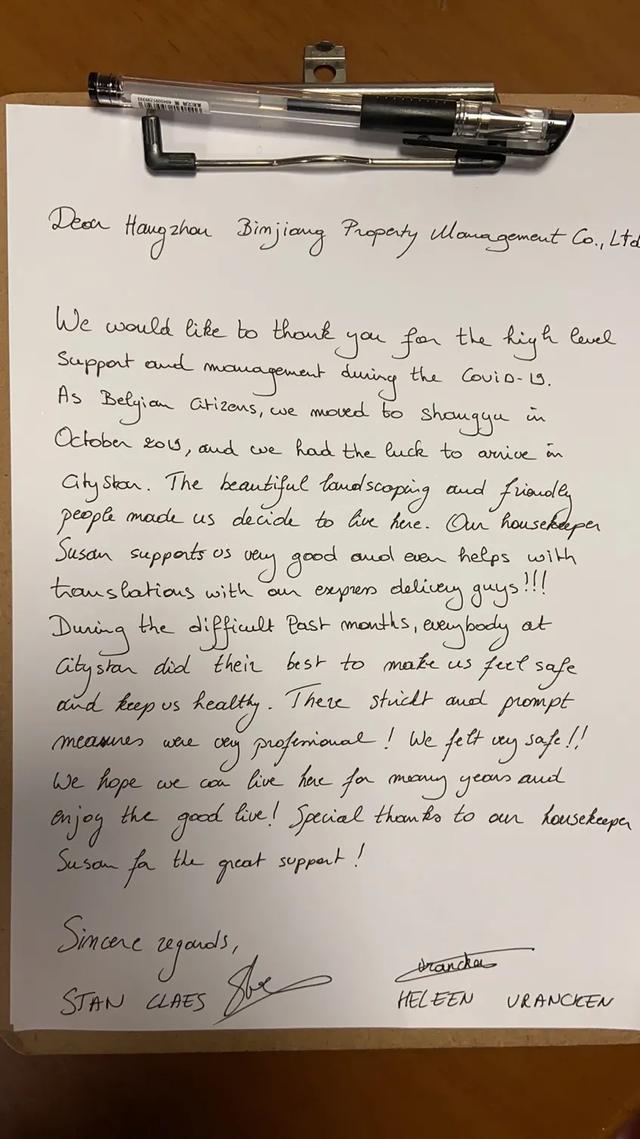 Dear Hangzhou Binjiang Property Management Co., Ltd
We would like to thank you for the high level
support and management during the CoviD-19.
As Belgian citizens, we moved to shangyu in
October 2019, and we had the luck to arrive in
Citystar. The beautiful landscoping and friendly
people made us decide to live here. Our housekeeper
Susan supports us very good and even helps with
translations with our express delivery guys!!!
During the difficult Past months, everybody at
Citystar did their best to make us feel safe
and keep us healthy. There strickt and prompt
measures were very professional! We felt very safe!!
We hope we can live here for many years and
enjoy the good live! Special thanks to our housekeeper
Susan for the great support!
Sincere regards,
Vrancken
STAN CLAES
HELEEN VRANCKEN